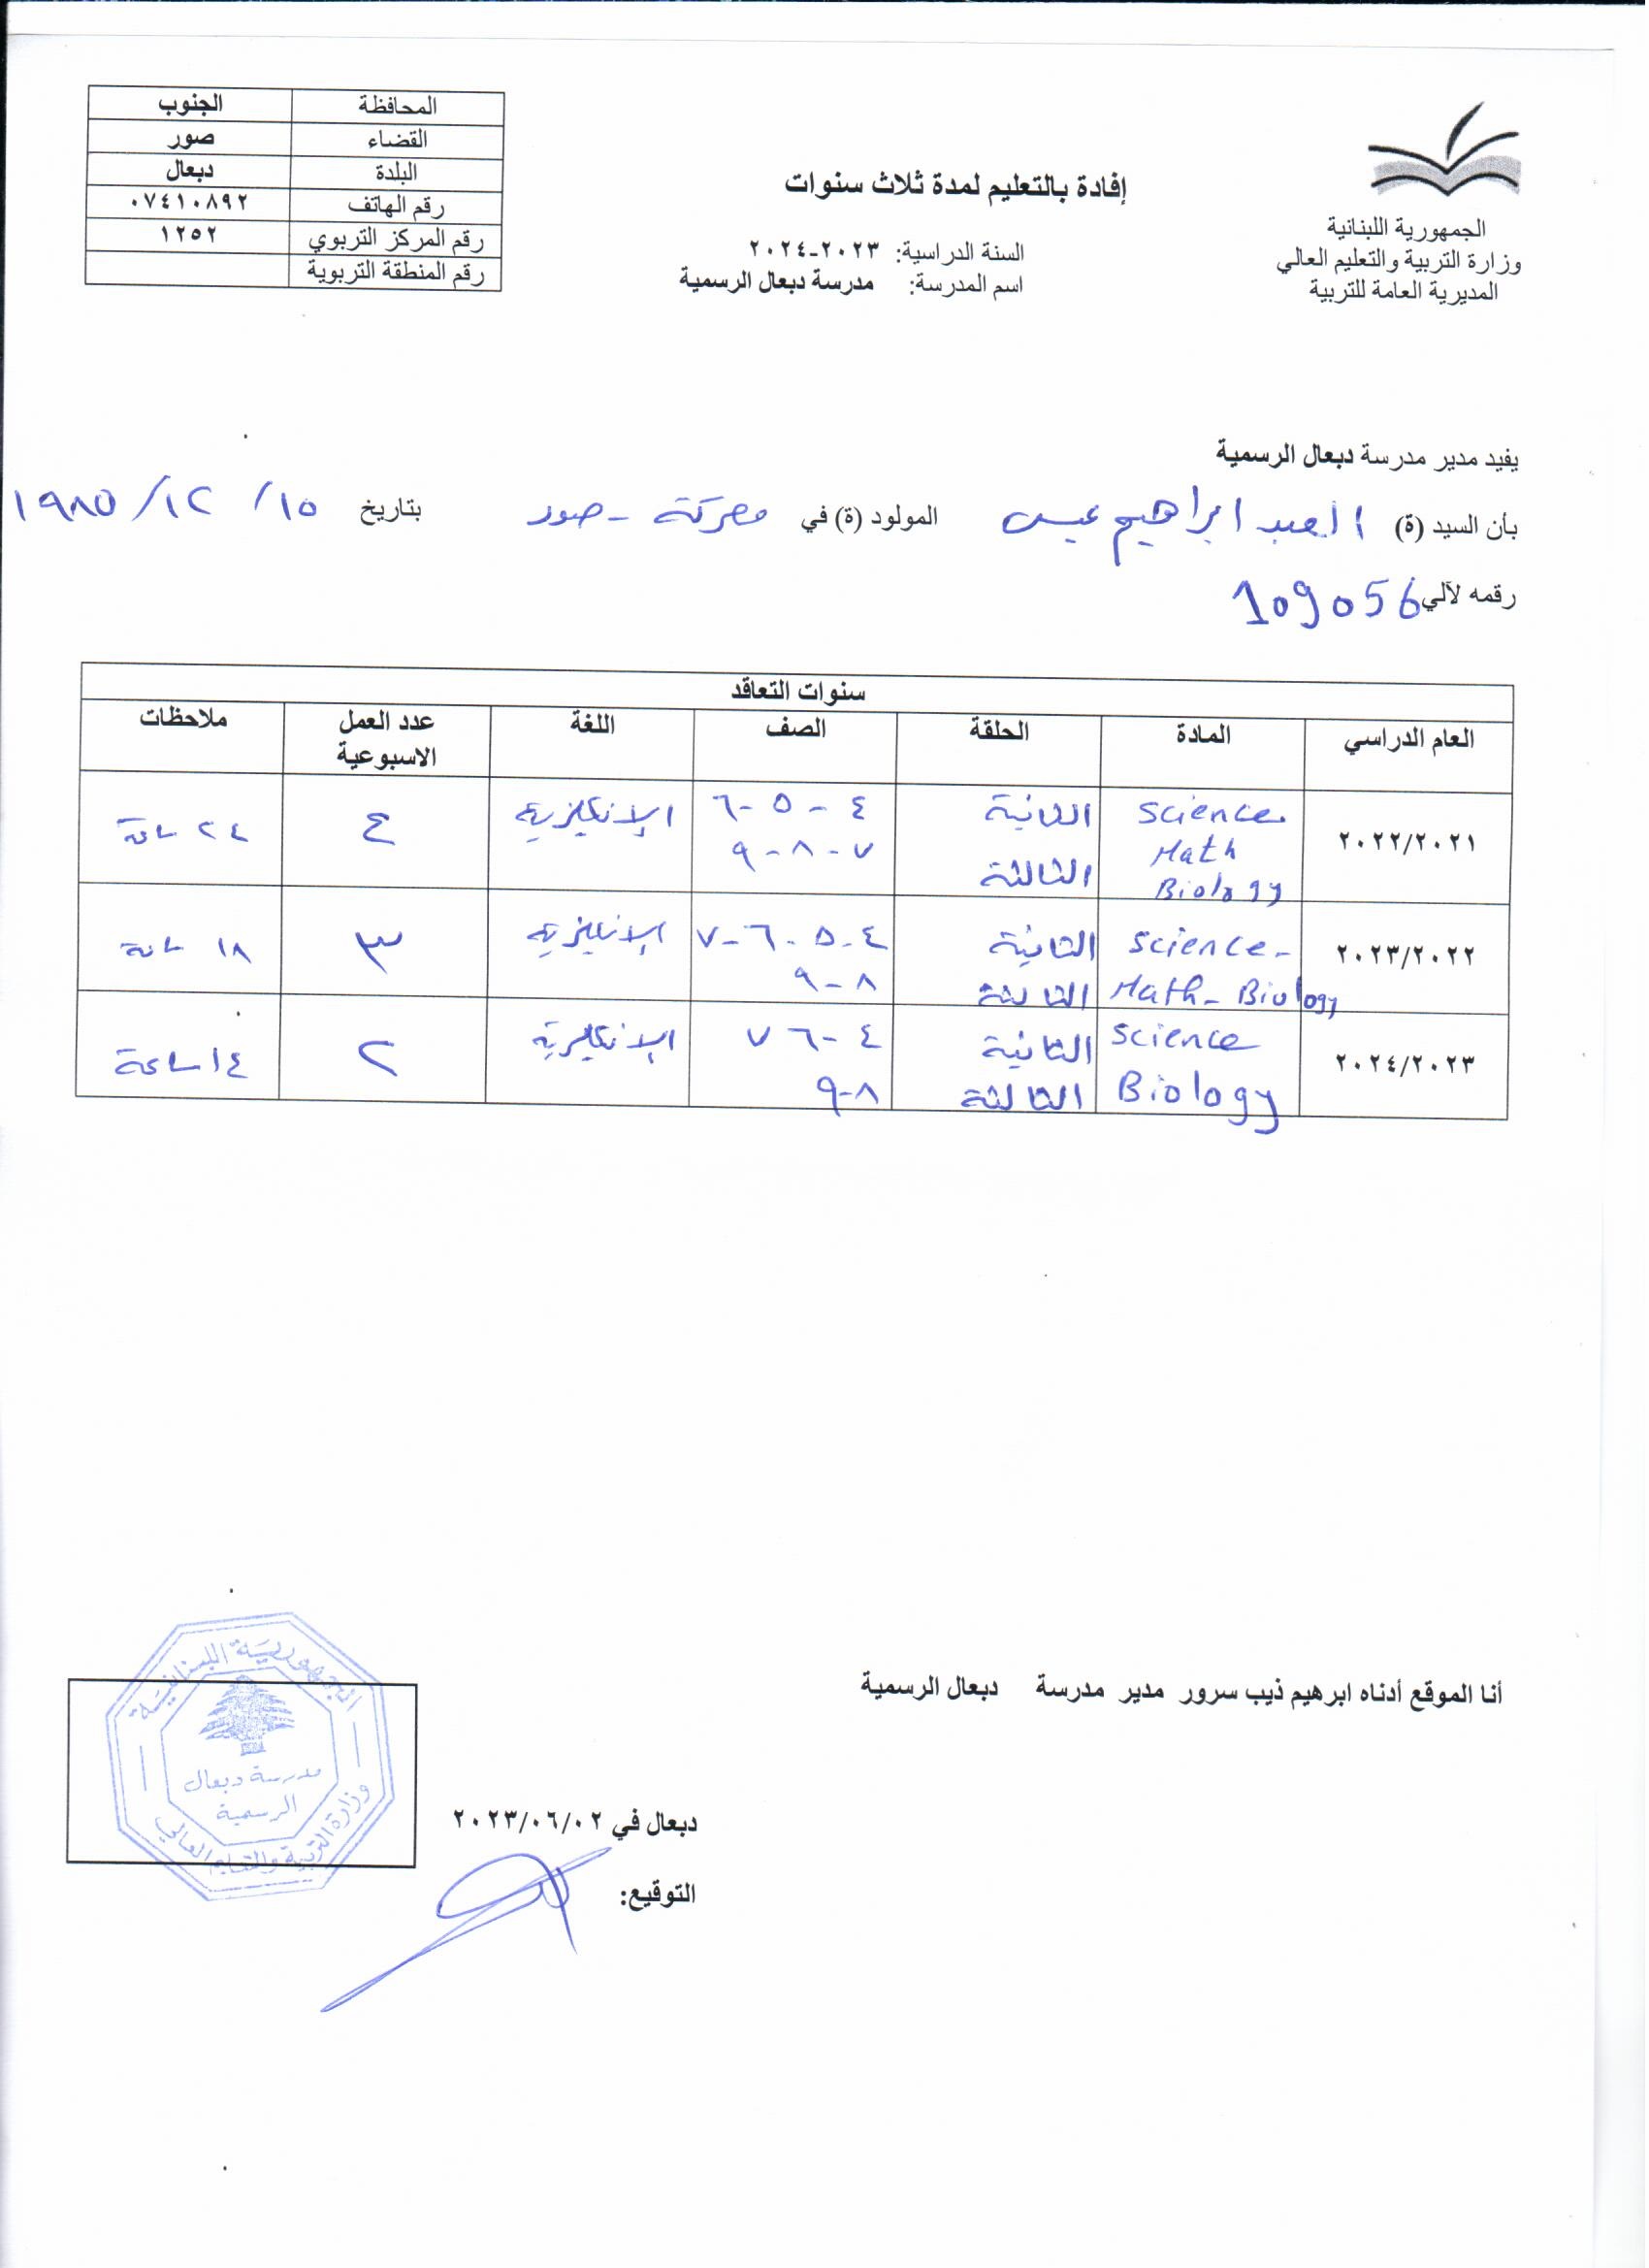 الجمهورية اللبنانية
وزارة التربية والتعليم العالي
المديرية العامة للتربية
إفادة بالتعليم لمدة ثلاث سنوات
السنة الدراسية: ٢٠٢٣-٢٠٢٤
اسم المدرسة: مدرسة دبعال الرسمية
المحافظة الجنوب
القضاء صور
البلدة دبعال
رقم الهاتف ٠٧٤١٠٨٩٢
رقم المركز التربوي ١٢٥٢
رقم المنطقة التربوية
يفيد مدير مدرسة دبعال الرسمية
بأن السيد (ة) العبد ابراهيم عيسى المولود (ة) في معركة - صور بتاريخ ١٥/ ١٢/ ١٩٨٥
رقمه لآلي 109056
سنوات التعاقد
العام الدراسي المادة الحلقة الصف اللغة عدد العمل الاسبوعية ملاحظات
٢٠٢٢/٢٠٢١ Science Math Biology الثانية الثالثة ٤ - ٥ - ٦ ٧ - ٨ - ٩ الإنكليزية ٤ ٢٤ ساعة
٢٠٢٣/٢٠٢٢ Science - Math - Biology الثانية الثالثة ٤ - ٥ - ٦ - ٧ ٨ - ٩ الإنكليزية ٣ ١٨ ساعة
٢٠٢٤/٢٠٢٣ Science Biology الثانية الثالثة ٤ - ٦ ٧ ٨ - ٩ الإنكليزية ٢ ١٤ ساعة
أنا الموقع أدناه ابرهيم ذيب سرور مدير مدرسة دبعال الرسمية
دبعال في ٢٠٢٣/٠٦/٠٢
التوقيع:
الجمهورية اللبنانية
مدرسة دبعال
الرسمية
وزارة التربية والتعليم العالي